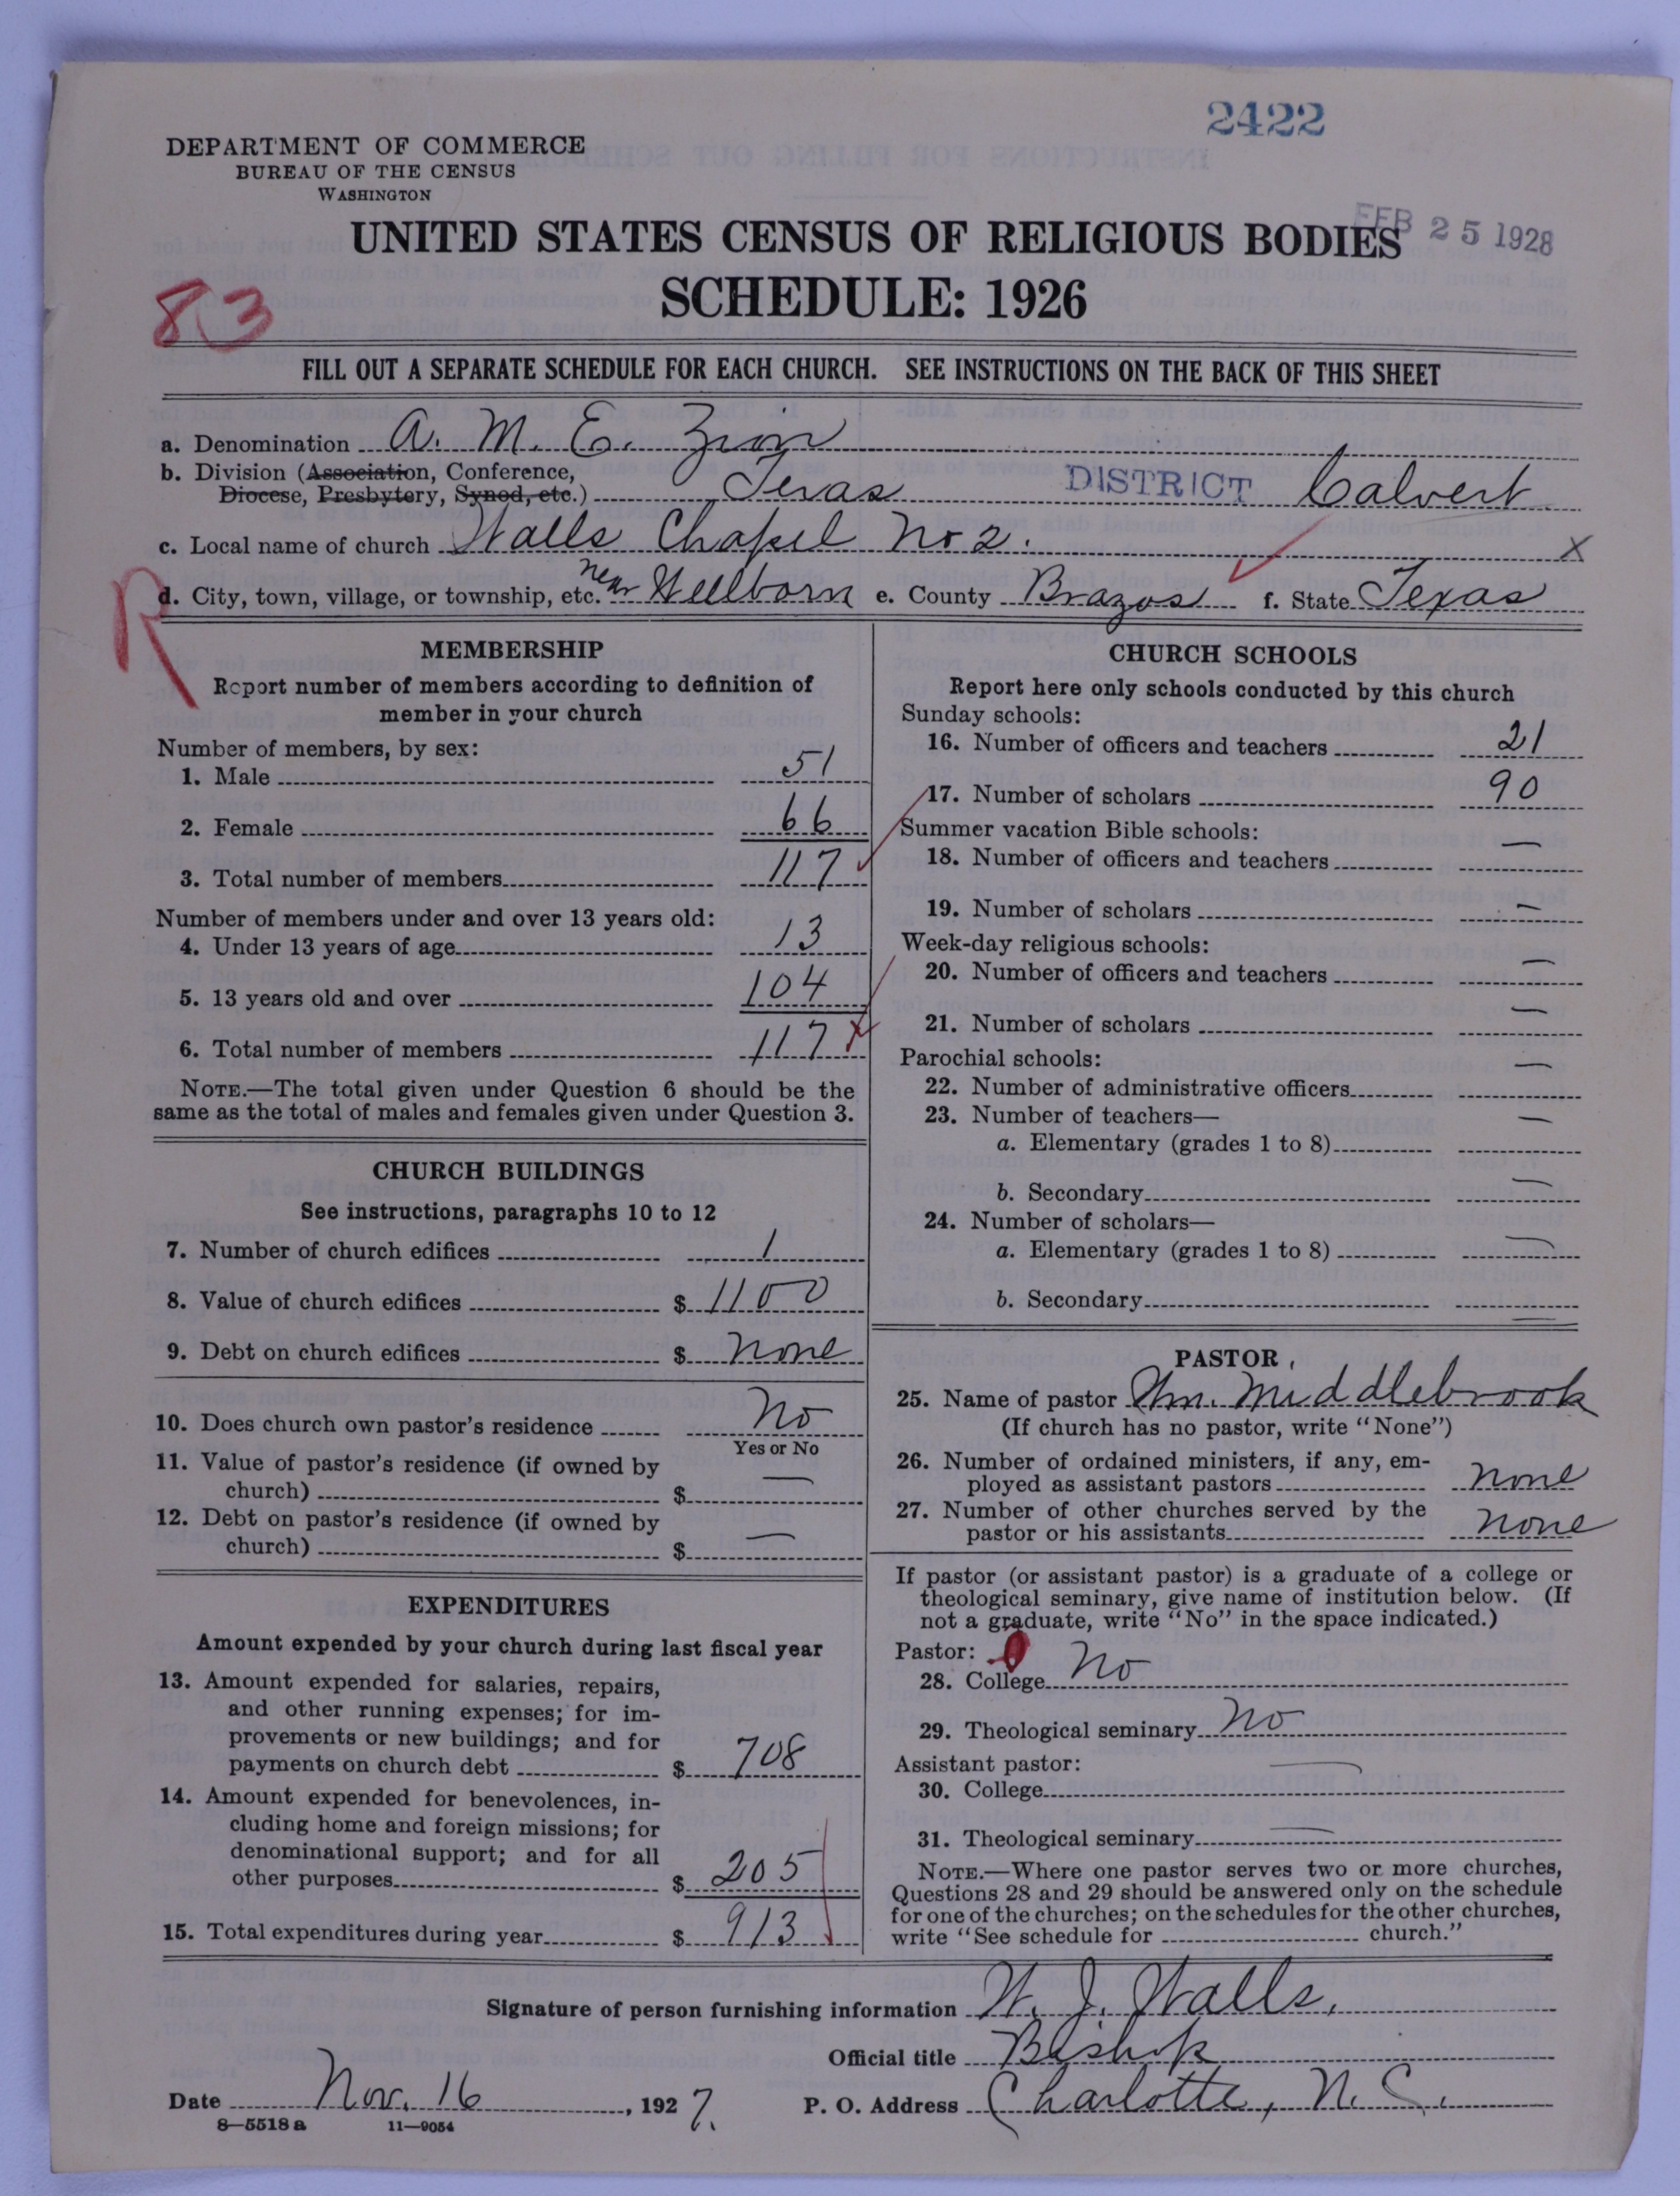 2422
DEPARTMENT OF COMMERCE
BUREAU OF THE CENSUS
WASHINGTON
UNITED STATES CENSUS OF RELIGIOUS BODIES
FEB 25 1928
SCHEDULE: 1926
83
FILL OUT A SEPARATE SCHEDULE FOR EACH CHURCH. SEE INSTRUCTIONS ON THE BACK OF THIS SHEET
a. Denomination A. M. E. Zion
b. Division (Association, Conference,
Diocese, Presbytery, Synod, etc.) Texas DISTRICT Calvert
c. Local name of church Walls Chapel No 2. X
R
d. City, town, village, or township, etc. near Wellborn e. County Brazos f. State Texas
MEMBERSHIP
Report number of members according to definition of
member in your church
Number of members, by sex:
1. Male 51
2. Female 66
3. Total number of members 117
Number of members under and over 13 years old:
4. Under 13 years of age 13
5. 13 years old and over 104
6. Total number of members 117
NOTE.—The total given under Question 6 should be the
same as the total of males and females given under Question 3.
CHURCH BUILDINGS
See instructions, paragraphs 10 to 12
7. Number of church edifices 1
8. Value of church edifices $ 1100
9. Debt on church edifices $ none
10. Does church own pastor's residence No
Yes or No
11. Value of pastor's residence (if owned by
church) $ —
12. Debt on pastor's residence (if owned by
church) $ —
EXPENDITURES
Amount expended by your church during last fiscal year
13. Amount expended for salaries, repairs,
and other running expenses; for im-
provements or new buildings; and for
payments on church debt $ 708
14. Amount expended for benevolences, in-
cluding home and foreign missions; for
denominational support; and for all
other purposes $ 205
15. Total expenditures during year $ 913
CHURCH SCHOOLS
Report here only schools conducted by this church
Sunday schools:
16. Number of officers and teachers 21
17. Number of scholars 90
Summer vacation Bible schools:
18. Number of officers and teachers —
19. Number of scholars —
Week-day religious schools:
20. Number of officers and teachers —
21. Number of scholars —
Parochial schools:
22. Number of administrative officers —
23. Number of teachers—
a. Elementary (grades 1 to 8) —
b. Secondary —
24. Number of scholars—
a. Elementary (grades 1 to 8) —
b. Secondary —
PASTOR
25. Name of pastor Wm. Middlebrook
(If church has no pastor, write "None")
26. Number of ordained ministers, if any, em-
ployed as assistant pastors none
27. Number of other churches served by the
pastor or his assistants none
If pastor (or assistant pastor) is a graduate of a college or
theological seminary, give name of institution below. (If
not a graduate, write "No" in the space indicated.)
Pastor:
28. College No
29. Theological seminary No
Assistant pastor:
30. College —
31. Theological seminary —
NOTE.—Where one pastor serves two or more churches,
Questions 28 and 29 should be answered only on the schedule
for one of the churches; on the schedules for the other churches,
write "See schedule for church."
Signature of person furnishing information W. J. Walls,
Official title Bishop
Date Nov. 16, 1927. P. O. Address Charlotte, N. C.
8—5518 a 11—9054